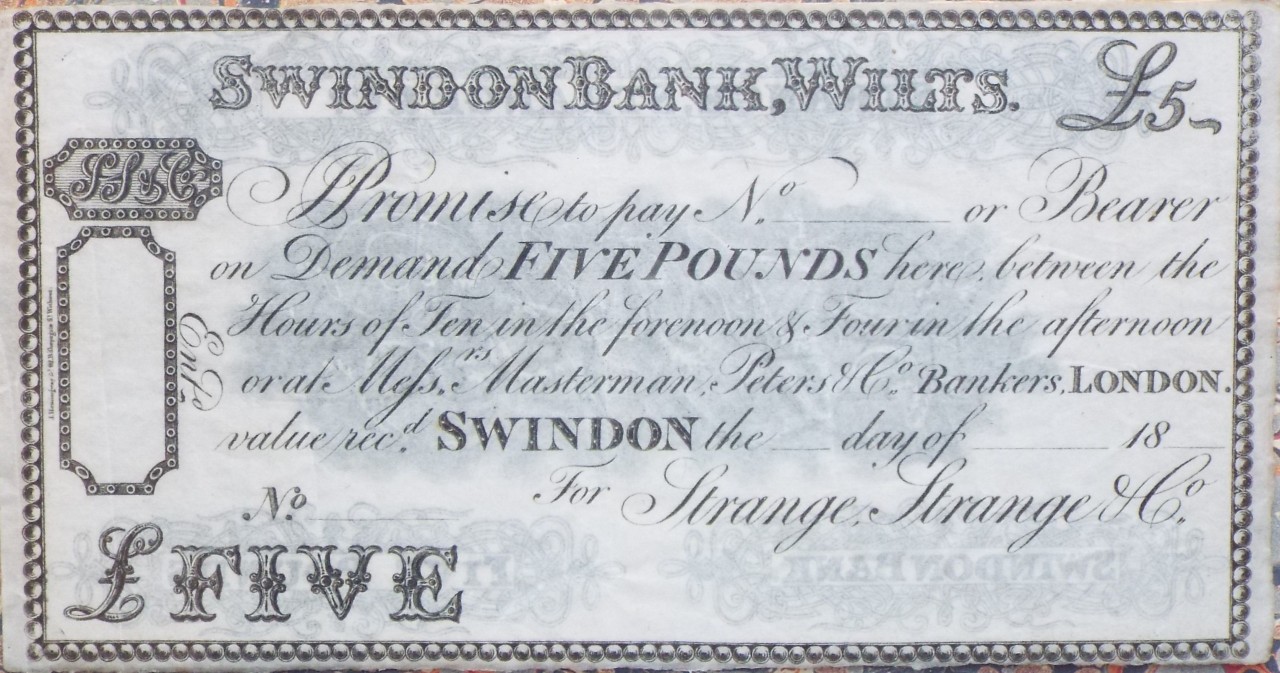 SWINDON BANK, WILTS. £5
SS&Co
I Promise to pay No. or Bearer
on Demand FIVE POUNDS here, between the
Hours of Ten in the forenoon & Four in the afternoon
or at Messrs. Masterman, Peters & Co. Bankers, LONDON.
value recd. SWINDON the day of 18
Entd.
No. For Strange, Strange & Co.
£ FIVE
SWINDON BANK